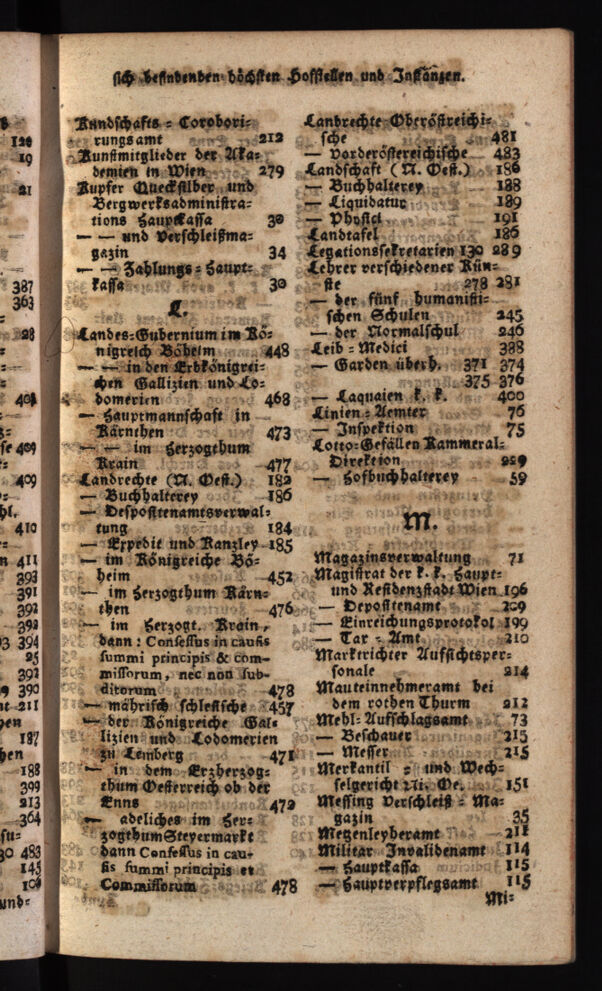 sich befindenden höchsten Hofstellen und Instanzen.
Kundschafts = Corobori=
rungsamt 212
Kunstmitglieder der Aka=
demien in Wien 279
Kupfer Quecksilber und
Bergwerksadministra=
tions Hauptkassa 30
— — und Verschleißma=
gazin 34
— — Zahlungs = Haupt=
kassa 30
L.
Landes=Gubernium im Kö=
nigreich Böheim 448
— — in den Erbkönigrei=
chen Gallizien und Lo=
domerien 468
— Hauptmannschaft in
Kärnthen 473
— — im Herzogthum
Krain 477
Landrechte (N. Oest.) 182
— Buchhalterey 186
— Depositenamtsverwal=
tung 184
— Expedit und Kanzley 185
— im Königreiche Bö=
heim 452
— im Herzogthum Kärn=
then 476
— im Herzogt. Krain,
dann: Consessus in causis
summi principis & com-
missorum, nec non sub-
ditorum 478
— mährisch schlesische 457
— der Königreiche Gal=
lizien und Lodomerien
zu Lemberg 471
— in dem Erzherzog=
thum Oesterreich ob der
Enns 472
— adeliches im Her=
zogthum Steyermarkt
dann Consessus in cau-
sis summi principis et
Commissorum 478
Landrechte Oberöstreichi=
sche 481
— vorderöstereichische 483
Landschaft (N. Oest.) 186
— Buchhalterey 188
— Liquidatur 189
— Physici 191
Landtafel 186
Legationssekretarien 130 289
Lehrer verschiedener Kün=
ste 278 281
— der fünf humanisti=
schen Schulen 245
— der Normalschul 246
Leib = Medici 388
— Garden überh. 371 374
375 376
— Laquaien k. k. 400
Linien = Aemter 76
— Inspektion 75
Lotto=Gefällen Kammeral=
Direktion 229
— Hofbuchhalterey 59
M.
Magazinsverwaltung 71
Magistrat der k. k. Haupt=
und Residenzstadt Wien 196
— Depositenamt 209
— Einreichungsprotokol 199
— Tax = Amt 210
Marktrichter Aufsichtsper=
sonale 214
Mauteinnehmeramt bei
dem rothen Thurm 212
Mehl=Aufschlagsamt 73
— Beschauer 215
— Messer 215
Merkantil = und Wech=
selgericht Ni. Oe. 151
Messing Verschleiß = Ma=
gazin 35
Metzenleyheramt 211
Militar Invalidenamt 114
— Hauptkassa 115
— Hauptverpflegsamt 115
Mi=